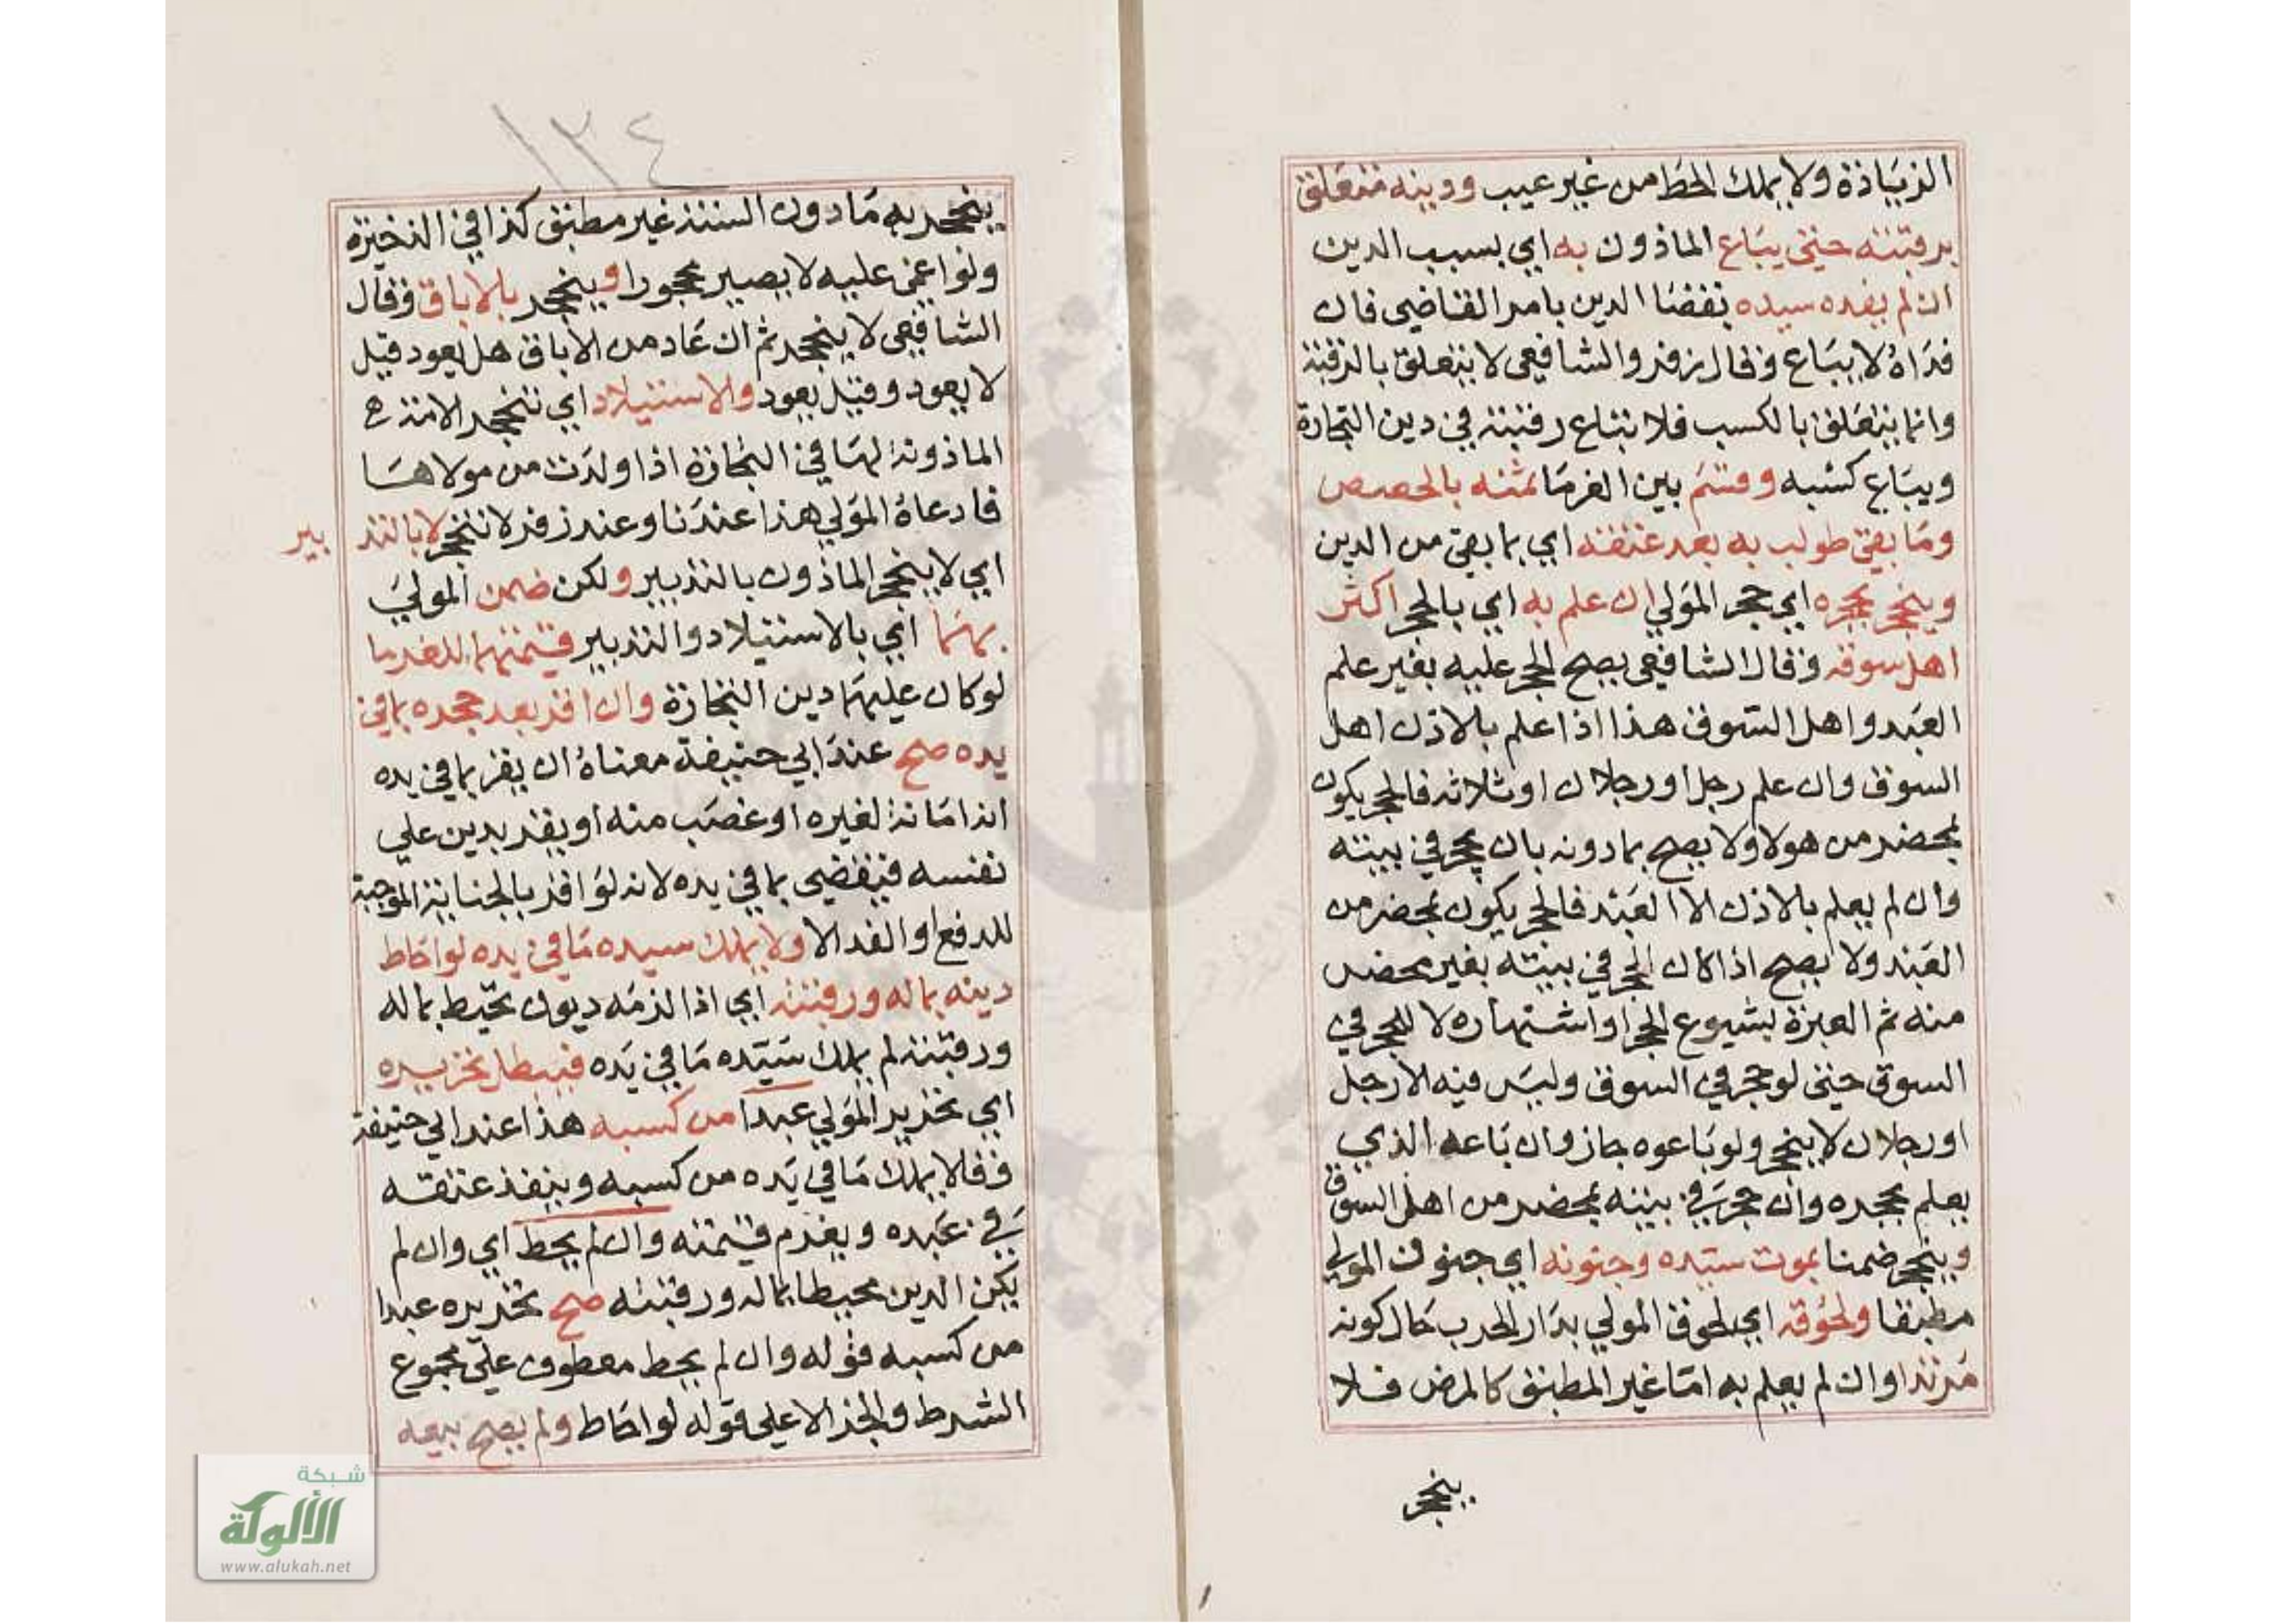 الزيادة ولا يملك الحط من غير عيب ودينه متعلق
برقبته حتى يباع الماذون به اي بسبب الدين
ان لم يفده سيده بقضا الدين بامر القاضي فان
فداه لا يباع وقال زفر والشافعي لا يتعلق بالرقبة
وانما يتعلق بالكسب فلا تباع رقبته في دين التجارة
ويباع كسبه وقسم بين الغرما ثمنه بالحصص
وما بقي طولب به بعد عتقه اي بما بقي من الدين
وينحجر بحجره اي حجر المولي ان علم به اي بالحجر اكثر
اهل سوقه وقال الشافعي يصح الحجر عليه بغير علم
العبد واهل السوق هذا اذا علم بالاذن اهل
السوق وان علم رجل او رجلان او ثلاثه فالحجر يكون
بمحضر من هولا ولا يصح بما دونه بان يحجر في بيته
وان لم يعلم بالاذن الا العبد فالحجر يكون بمحضر من
العبد ولا يصح اذا كان الحجر في بيته بغير محضر
منه ثم العبرة لشيوع الحجر او اشتهاره لا للحجر في
السوق حتى لو حجر في السوق وليس فيه الا رجل
او رجلان لا ينحجر ولو باعوه جاز وان باعه الذي
يعلم بحجره وان حجر في بيته بمحضر من اهل السوق
وينحجر ضمنا بموت سيده وجنونه اي جنون المولي
مطبقا ولحوقه اي لحوق المولي بدار الحرب حال كونه
مرتدا وان لم يعلم به اما غير المطبق كالمرض فلا
ينحجر
١٢٤
ينحجر به ما دون السنة غير مطبق كذا في الذخيرة
ولو اغمي عليه لا يصير محجورا وينحجر بالاباق وقال
الشافعي لا ينحجر ثم ان عاد من الاباق هل يعود قيل
لا يعود وقيل يعود والاستيلاد اي تنحجر الامة
الماذونة لها في التجارة اذا ولدت من مولاها
فادعاه المولي هذا عندنا وعند زفر لا تنحجر لا بالتد بير
اي لا ينحجر الماذون بالتدبير ولكن ضمن المولي
بهما اي بالاستيلاد والتدبير قيمتهما للغرما
لو كان عليهما دين التجارة وان اقر بعد حجره بما في
يده صح عند ابي حنيفة معناه ان يقر بما في يده
انه امانة لغيره او غصب منه او يقر بدين علي
نفسه فيقضي بما في يده لانه لو اقر بالجناية الموجبة
للدفع او الفدا لا ولا يملك سيده ما في يده لو احاط
دينه بماله ورقبته اي اذا لزمه ديون تحيط بماله
ورقبته لم يملك سيده ما في يده فبطل تحريره
اي تحرير المولي عبدا من كسبه هذا عند ابي حنيفة
وقالا يملك ما في يده من كسبه وينفذ عتقه
في عبده ويغرم قيمته وان لم يحط اي وان لم
يكن الدين محيطا بماله ورقبته صح تحريره عبدا
من كسبه قوله وان لم يحط معطوف علي مجموع
الشرط والجزا لا علي قوله لو احاط ولم يصح بيعه
شبكة
الألوكة
www.alukah.net